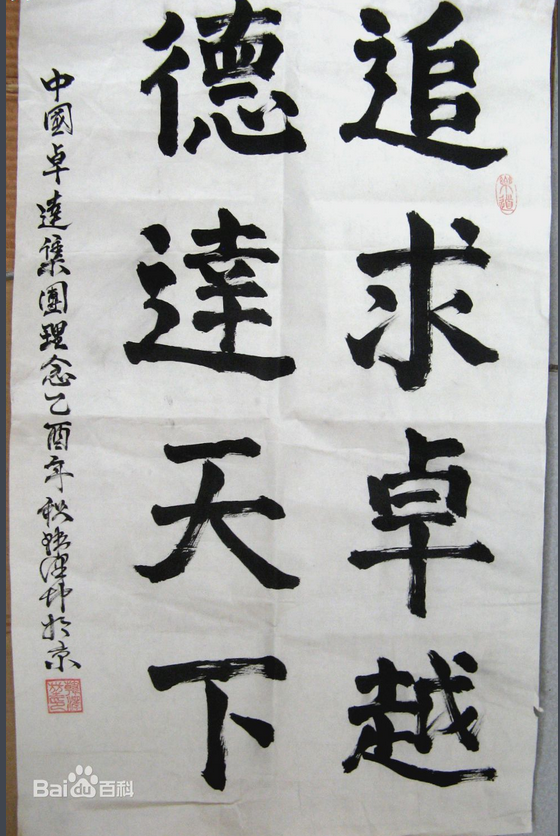 追求卓越
德達天下
中國卓達集團理念乙酉年秋張澤坤於京
Baidu百科